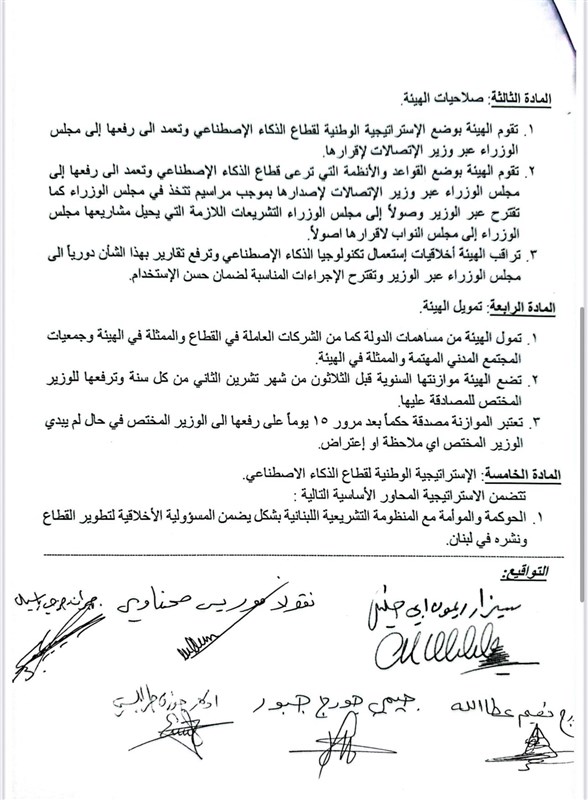 المادة الثالثة: صلاحيات الهيئة.
١. تقوم الهيئة بوضع الإستراتيجية الوطنية لقطاع الذكاء الإصطناعي وتعمد الى رفعها إلى مجلس
الوزراء عبر وزير الإتصالات لإقرارها.
٢. تقوم الهيئة بوضع القواعد والأنظمة التي ترعى قطاع الذكاء الإصطناعي وتعمد الى رفعها إلى
مجلس الوزراء عبر وزير الإتصالات لإصدارها بموجب مراسيم تتخذ في مجلس الوزراء كما
تقترح عبر الوزير وصولاً إلى مجلس الوزراء التشريعات اللازمة التي يحيل مشاريعها مجلس
الوزراء إلى مجلس النواب لاقرارها اصولاً.
٣. تراقب الهيئة أخلاقيات إستعمال تكنولوجيا الذكاء الإصطناعي وترفع تقارير بهذا الشأن دورياً الى
مجلس الوزراء عبر الوزير وتقترح الإجراءات المناسبة لضمان حسن الإستخدام.
المادة الرابعة: تمويل الهيئة.
١. تمول الهيئة من مساهمات الدولة كما من الشركات العاملة في القطاع والممثلة في الهيئة وجمعيات
المجتمع المدني المهتمة والممثلة في الهيئة.
٢. تضع الهيئة موازنتها السنوية قبل الثلاثون من شهر تشرين الثاني من كل سنة وترفعها للوزير
المختص للمصادقة عليها.
٣. تعتبر الموازنة مصدقة حكماً بعد مرور ١٥ يوماً على رفعها الى الوزير المختص في حال لم يبدي
الوزير المختص اي ملاحظة او إعتراض.
المادة الخامسة: الإستراتيجية الوطنية لقطاع الذكاء الاصطناعي.
تتضمن الاستراتيجية المحاور الأساسية التالية :
١. الحوكمة والموأمة مع المنظومة التشريعية اللبنانية بشكل يضمن المسؤولية الأخلاقية لتطوير القطاع
ونشره في لبنان.
التواقيع:
سيزار ريمون ابي خليل
نقولا موريس صحناوي
جيمي جورج جبور
نسيم عطاالله